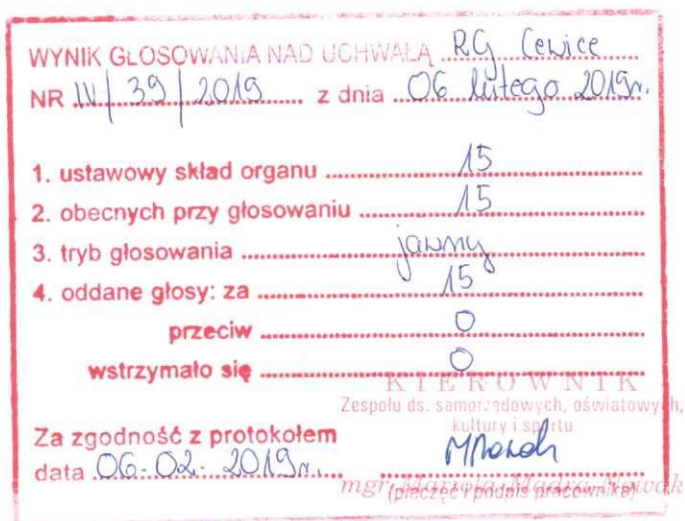 WYNIK GŁOSOWANIA NAD UCHWAŁĄ RG Cewice
NR IV/39/2019 z dnia 06 lutego 2019r.
1. ustawowy skład organu 15
2. obecnych przy głosowaniu 15
3. tryb głosowania jawny
4. oddane głosy: za 15
przeciw 0
wstrzymało się 0
KIEROWNIK
Zespołu ds. samorządowych, oświatowych,
kultury i sportu
Za zgodność z protokołem
data 06-02-2019r.
mgr Mariola Mądra-Nowak
(pieczęć i podpis pracownika)